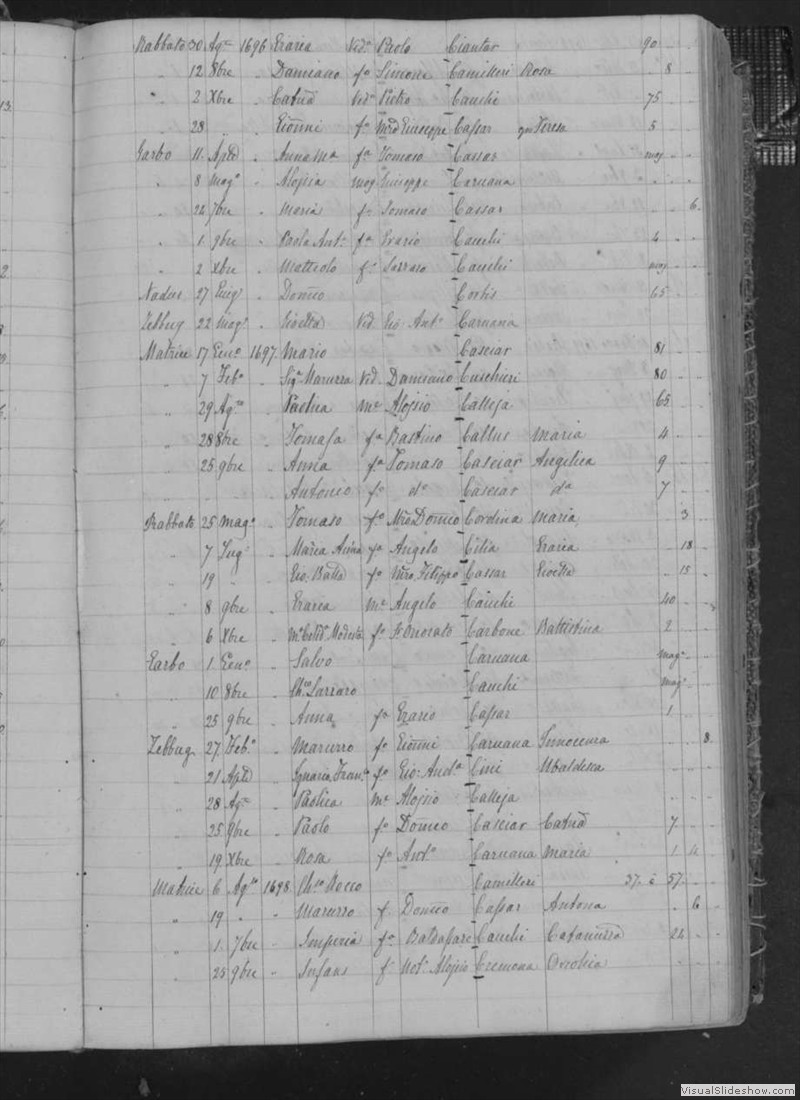 Rabbato 30 Ag:º 1696 Grazia Ved:ª Paolo Ciantar 90
" 12 8bre " Damiano fº Simone Camilleri Rosa 8
" 2 Xbre " Catnª Ved:ª Pietro Cauchi 75
" 28 " " Gionni fº Mro Giuseppe Cassar Teresa 5
Garbo 11 Aple " Anna Mª fª Tomaso Cassar mag
" 8 Magº " Aloisia mog Giuseppe Caruana
" 22 7bre " Maria fª Tomaso Cassar 6
" 1 9bre " Paola Antª fª Grazio Cauchi 4
" 2 Xbre " Matteolo fº Lazzaro Cauchi mag
Nadur 27 Giugº " Domco Cortis 65
Zebbug 22 Magº " Gioella Ved Gio: Antº Caruana
Matrice 17 Genº 1697 Mario Casciar 81
" 7 Febº " Sigª Maruzza Ved. Damiano Cuschieri 80
" 29 Agº " Paolica Mº Aloisio Calleja 65
" 28 8bre " Tomasa fª Bastino Callus Maria 4
" 25 9bre " Anna fª Tomaso Casciar Angelica 9
" " " Antonio fº dº Casciar dª 7
Rabbato 25 Magº " Tomaso fº Mro Domco Cordina Maria 3
" 7 Lugº " Maria Anna fª Angelo Cilia Grazia 18
" 19 " " Gio: Batta fº Mro Filippo Cassar Gioella 15
" 8 9bre " Grazia Mº Angelo Cauchi 40
" 6 Xbre " Modesta fª Onorato Carbone Battistina 2
Garbo 1 Genº " Salvo Caruana magº
" 10 8bre " Chco Lazzaro Cauchi magº
" 25 9bre " Anna fª Grazio Cassar 1
Zebbug 27 Febº " Maruzzo fº Gionni Caruana Innocenza 8
" 21 Aple " Ignazia Franca fª Gio: Andª Cini Ubaldesca
" 28 Agº " Paolica Mº Aloisio Calleja
" 25 9bre " Paolo fº Domco Casciar Catnª 7
" 19 Xbre " Rosa fª Antº Caruana Maria 1 4
Matrice 6 Agº 1698 Chco Rocco Camilleri 37. è 57
" 19 " " Maruzzo f. Domco Cassar Antona 6
" 1 7bre " Imperia fª Baldassare Cauchi Catarinuzza 22
" 25 9bre " Infans f. Notº Aloisio Cremona
VisualSlideshow.com